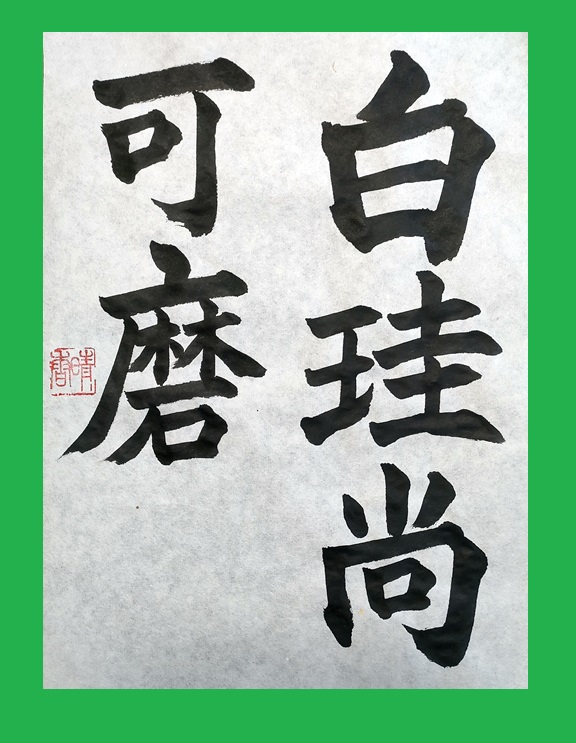 白珪尚
可磨
晴香